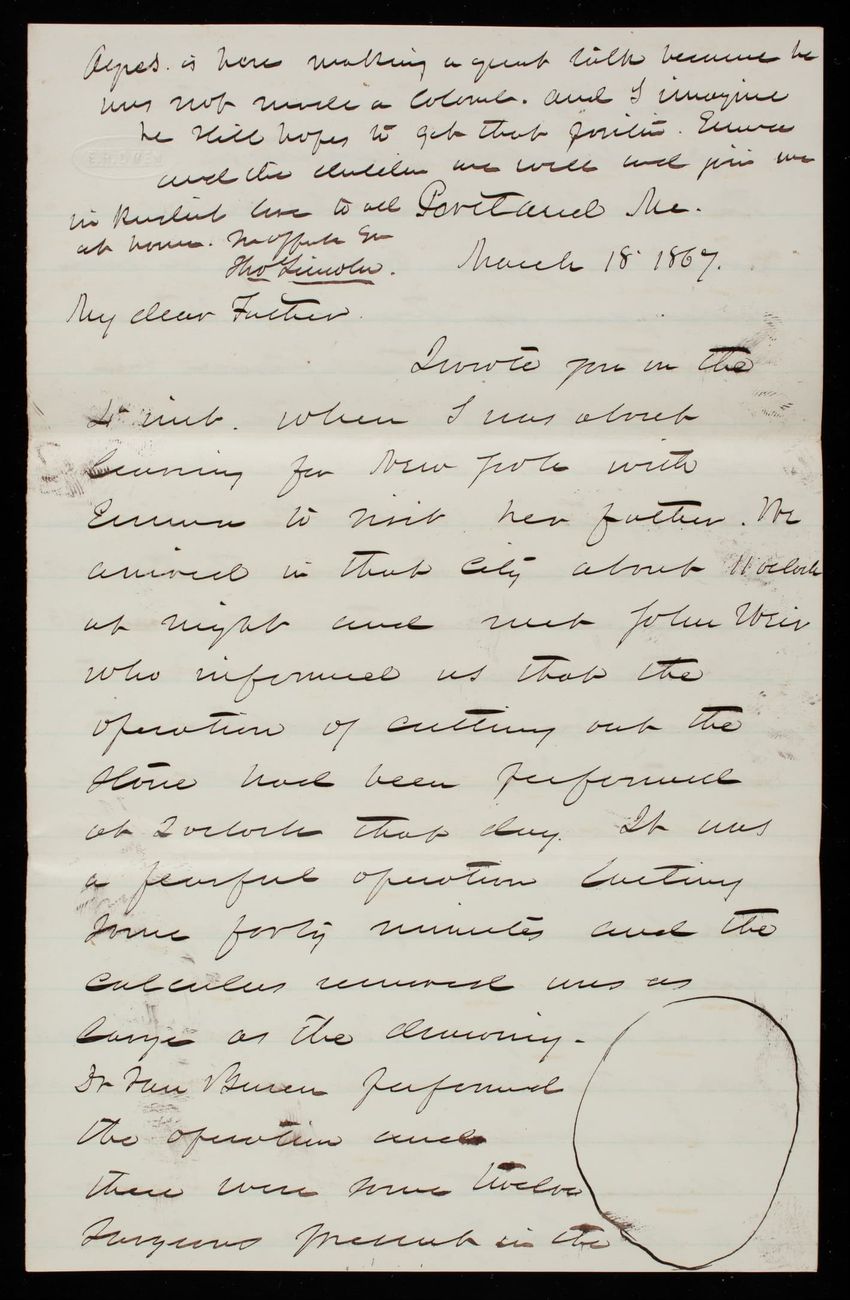 is here making a great talk because he
was not made a Colonel. and I imagine
he still hopes to get that position. Emma
and the children are well and join me
in kindest love to all Portland Me.
at home. Yr affte Son
Tho Lincoln. March 18 1867.
My dear Father.
I wrote you on the
4th inst. when I was about
leaving for New York with
Emma to visit her father. We
arrived in that City about 11 oclock
at night and met John Weir
who informed us that the
operation of cutting out the
Stone had been performed
at 2 oclock that day. It was
a fearful operation lasting
some forty minutes and the
calculus removed was as
large as the drawing-
Dr Van Buren performed
the operation and
there were some twelve
Surgeons present in the